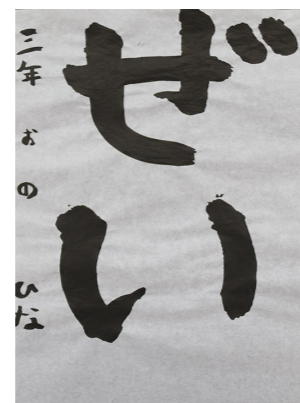 ぜい
三年 おの ひな